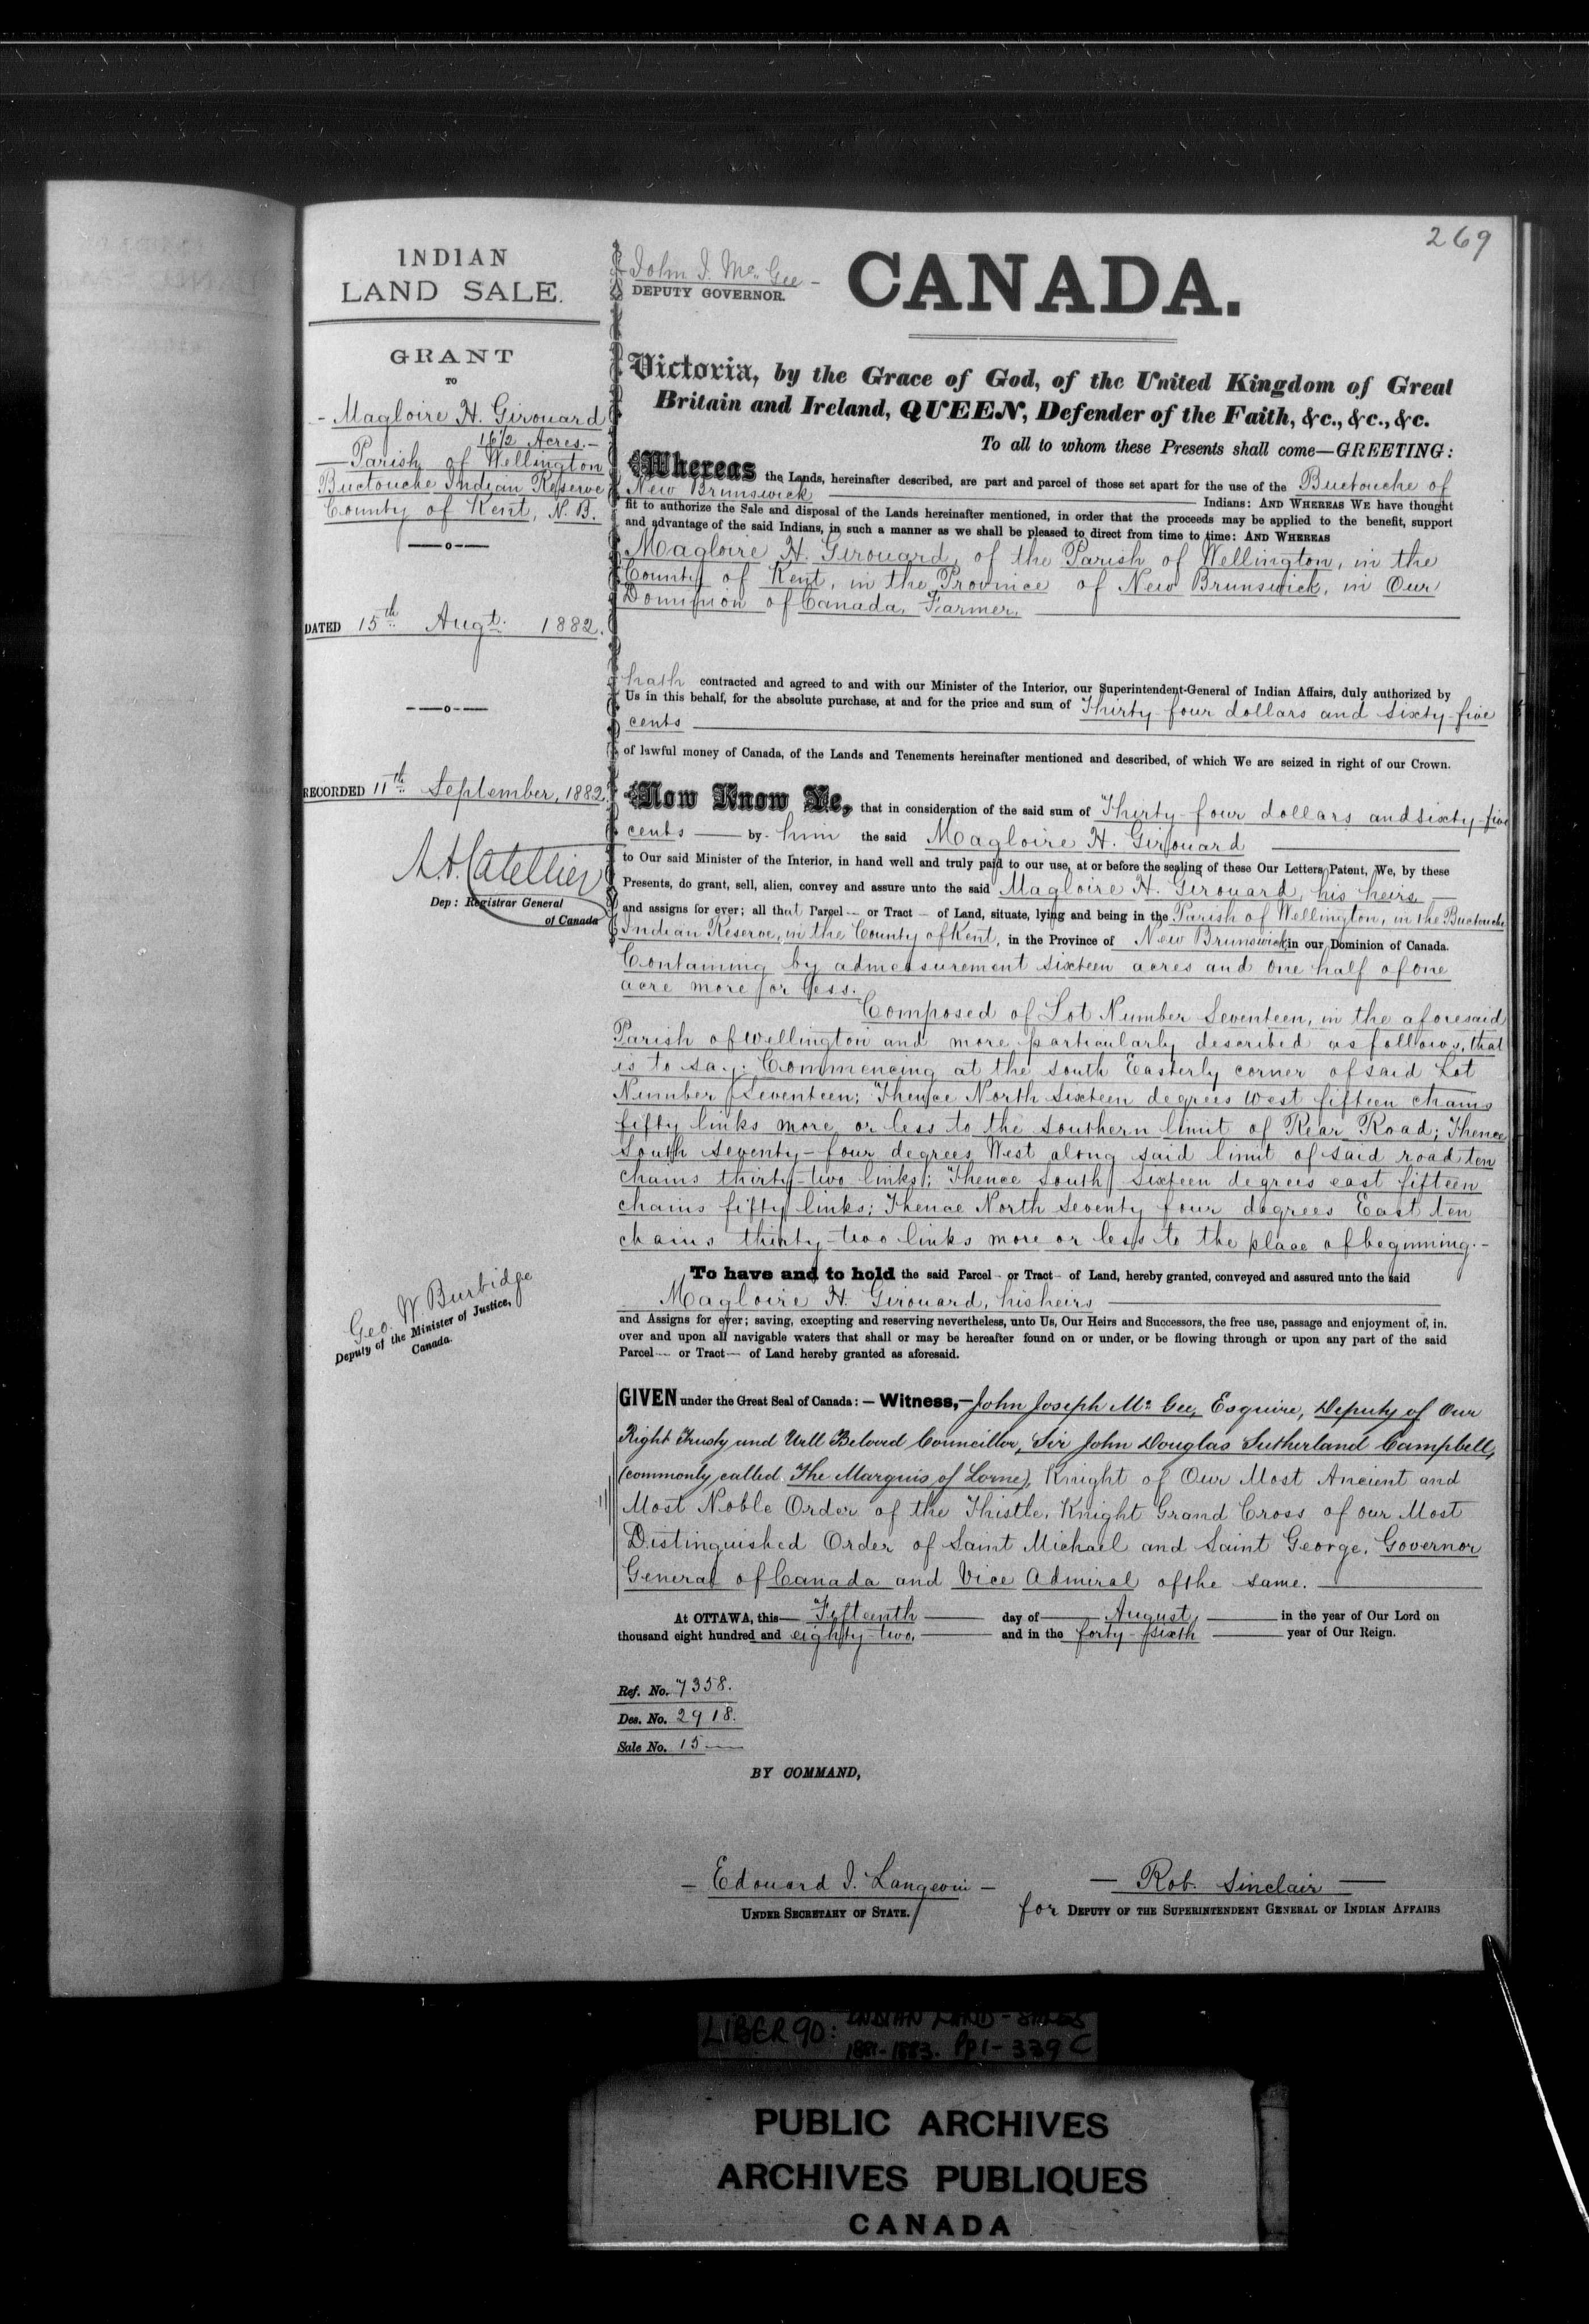 269
INDIAN
LAND SALE.
GRANT
TO
- Magloire H. Girouard
16½ Acres. -
- Parish of Wellington
Buctouche Indian Reserve
County of Kent, N. B.
DATED 15th Augt. 1882.
RECORDED 11th September, 1882.
Dep: Registrar General
of Canada
Geo. W. Burbidge
Deputy of the Minister of Justice,
Canada.
John J. McGee -
DEPUTY GOVERNOR.
CANADA.
Victoria, by the Grace of God, of the United Kingdom of Great
Britain and Ireland, QUEEN, Defender of the Faith, &c., &c., &c.
To all to whom these Presents shall come—GREETING:
Whereas the Lands, hereinafter described, are part and parcel of those set apart for the use of the Buctouche of
New Brunswick Indians: AND WHEREAS WE have thought
fit to authorize the Sale and disposal of the Lands hereinafter mentioned, in order that the proceeds may be applied to the benefit, support
and advantage of the said Indians, in such a manner as we shall be pleased to direct from time to time: AND WHEREAS
Magloire H. Girouard, of the Parish of Wellington, in the
County of Kent, in the Province of New Brunswick, in Our
Dominion of Canada, Farmer,
hath contracted and agreed to and with our Minister of the Interior, our Superintendent-General of Indian Affairs, duly authorized by
Us in this behalf, for the absolute purchase, at and for the price and sum of Thirty-four dollars and sixty-five
cents
of lawful money of Canada, of the Lands and Tenements hereinafter mentioned and described, of which We are seized in right of our Crown.
Now Know Ye, that in consideration of the said sum of Thirty-four dollars and sixty-five
cents — by him the said Magloire H. Girouard
to Our said Minister of the Interior, in hand well and truly paid to our use, at or before the sealing of these Our Letters Patent, We, by these
Presents, do grant, sell, alien, convey and assure unto the said Magloire H. Girouard, his heirs
and assigns for ever; all that Parcel — or Tract — of Land, situate, lying and being in the Parish of Wellington, in the Buctouche
Indian Reserve, in the County of Kent, in the Province of New Brunswick, in our Dominion of Canada.
Containing by admeasurement sixteen acres and one half of one
acre more or less.
Composed of Lot Number Seventeen, in the aforesaid
Parish of Wellington and more particularly described as follows, that
is to say: Commencing at the South Easterly corner of said Lot
Number Seventeen; Thence North Sixteen degrees West fifteen chains
fifty links more or less to the Southern limit of Rear Road; Thence
South seventy-four degrees West along said limit of said road ten
chains thirty-two links; Thence South Sixteen degrees east fifteen
chains fifty links; Thence North Seventy four degrees East ten
chains thirty-two links more or less to the place of beginning. -
To have and to hold the said Parcel - or Tract - of Land, hereby granted, conveyed and assured unto the said
Magloire H. Girouard, his heirs
and Assigns for ever; saving, excepting and reserving nevertheless, unto Us, Our Heirs and Successors, the free use, passage and enjoyment of, in,
over and upon all navigable waters that shall or may be hereafter found on or under, or be flowing through or upon any part of the said
Parcel — or Tract — of Land hereby granted as aforesaid.
GIVEN under the Great Seal of Canada: — Witness, — John Joseph McGee, Esquire, Deputy of Our
Right Trusty and Well Beloved Councillor, Sir John Douglas Sutherland Campbell,
(commonly called The Marquis of Lorne), Knight of Our Most Ancient and
Most Noble Order of the Thistle, Knight Grand Cross of our Most
Distinguished Order of Saint Michael and Saint George, Governor
General of Canada and Vice Admiral of the same.
At OTTAWA, this — Fifteenth — day of — August, — in the year of Our Lord on
thousand eight hundred and eighty-two, — and in the forty-sixth — year of Our Reign.
Ref. No. 7358.
Des. No. 2918.
Sale No. 15 —
BY COMMAND,
- Edouard J. Langevin -
UNDER SECRETARY OF STATE.
— Rob. Sinclair —
for DEPUTY OF THE SUPERINTENDENT GENERAL OF INDIAN AFFAIRS
LIBER 90: INDIAN LAND-SALES
1881-1883. Pp 1-339 C
PUBLIC ARCHIVES
ARCHIVES PUBLIQUES
CANADA